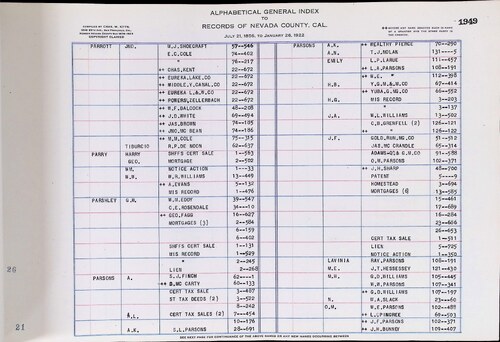 ALPHABETICAL GENERAL INDEX
TO
RECORDS OF NEVADA COUNTY, CAL.
JULY 21, 1856, TO JANUARY 26, 1922
COPYRIGHT CLAIMED
1949
PARROTT JNO. M.J. SHOECRAFT 57—546
E.C. COLE 74—402
" 76—217
++ CHAS. KENT 22—672
++ EUREKA LAKE CO 22—672
++ MIDDLE.Y. CANAL.CO 22—672
++ EUREKA L.& W.CO 22—672
++ POWERS, ZELLERBACH 22—672
++ W.F. BALDOCK 48—208
++ J.D. WHITE 69—494
++ JAS. BROWN 74—185
++ JNO. MC BEAN 74—186
++ M.M. COLE 75—315
TIBURCIO R.P. DE NOON 62—637
PARRY HARRY SHFFS CERT SALE 1—583
GEO. MORTGAGE 2—502
WM. NOTICE ACTION 1—33
WM. W.R. WILLIAMS 13—449
++ A. EVANS 5—132
MIS RECORD 1—476
PARSHLEY G.W. WM. EDDY 39—547
C.E. ROSENDALE 34—10
++ GEO. FAGG 16—627
MORTGAGES (3) 2—584
6—159
6—402
SHFFS CERT SALE 1—131
MIS RECORD 1—529
" 2—245
LIEN 2—268
PARSONS A. S.J. FINCH 62—1
++ D. MC CARTY 60—133
CERT TAX SALE 3—407
ST TAX DEEDS (2) 3—502
8—242
A.L. CERT TAX SALES (2) 7—454
10—176
A.K. S.L. PARSONS 28—691
PARSONS A.K. ++ WEALTHY PIERCE 70—290
A.N. T.J. NOLAN 131—5
EMILY L.P. LARUE 111—457
++ L.A. PARSONS 108—191
++ W.E. " 112—398
H.B. Y.G.M.& W.CO 67—414
++ YUBA.G.NG.CO 66—552
H.G. MIS RECORD 3—203
" 3—137
J.A. W.L. WILLIAMS 13—502
C.B. GRENFELL (2) 126—121
++ " 126—122
J.F. GOLD.RUN.NG.CO 51—512
JAS. MC CRANDLE 65—314
ADAMS-OZ& G.N.CO 91—588
O.H. PARSONS 102—371
++ J.H. SHARP 48—700
PATENT 5—9
HOMESTEAD 3—694
MORTGAGES (6) 13—585
15—461
17—689
16—284
23—686
26—653
CERT TAX SALE 1—511
LIEN 5—725
NOTICE ACTION 1—352
LAVINIA RAY. PARSONS 108—191
M.E. J.T. HENNESSEY 121—430
M.H. G.D. WILLIAMS 105—445
W.W. PARSONS 107—341
++ G.D. WILLIAMS 107—197
N. M.A. SLACK 23—60
O.H. W.E. PARSONS 102—488
++ L.L. PINGREE 69—503
++ J.F. PARSONS 102—371
++ J.H. BURNEY 109—407
26
21
SEE NEXT PAGE FOR CONTINUANCE OF THE ABOVE NAMES OR ANY NEW NAMES OCCURRING BETWEEN